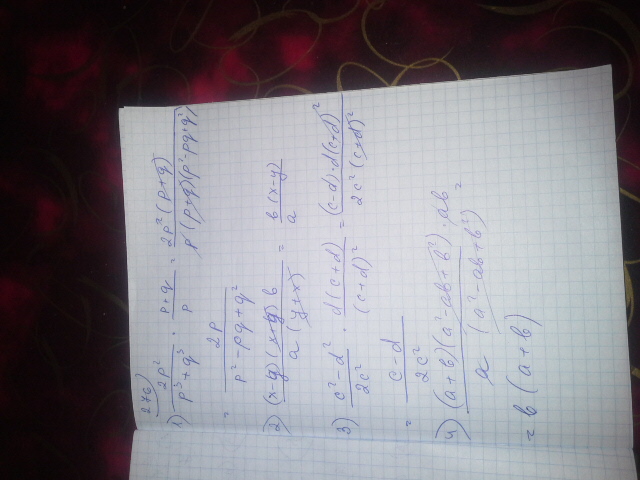 276)
1) 2p² / (p³+q³) · (p+q) / p = 2p²(p+q) / p(p+q)(p²-pq+q²)
= 2p / (p²-pq+q²)
2) (x-y)(x+y)b / a(y+x) = b(x-y) / a
3) (c²-d²) / 2c² · d(c+d) / (c+d)² = (c-d)·d(c+d)² / 2c²(c+d)²
= (c-d) / 2c²
4) (a+b)(a²-ab+b²)·ab / a (a²-ab+b²) =
= b(a+b)